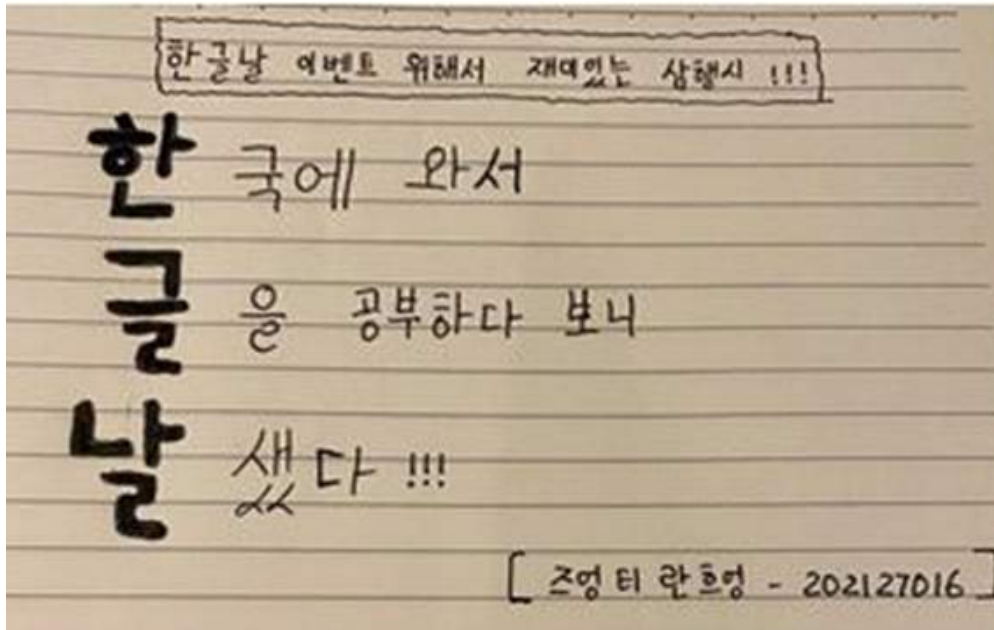 한글날 이벤트 위해서 재미있는 삼행시 !!!
한국에 와서
글을 공부하다 보니
날샜다 !!!
[즈엉 티 란 흐엉 - 202127016]